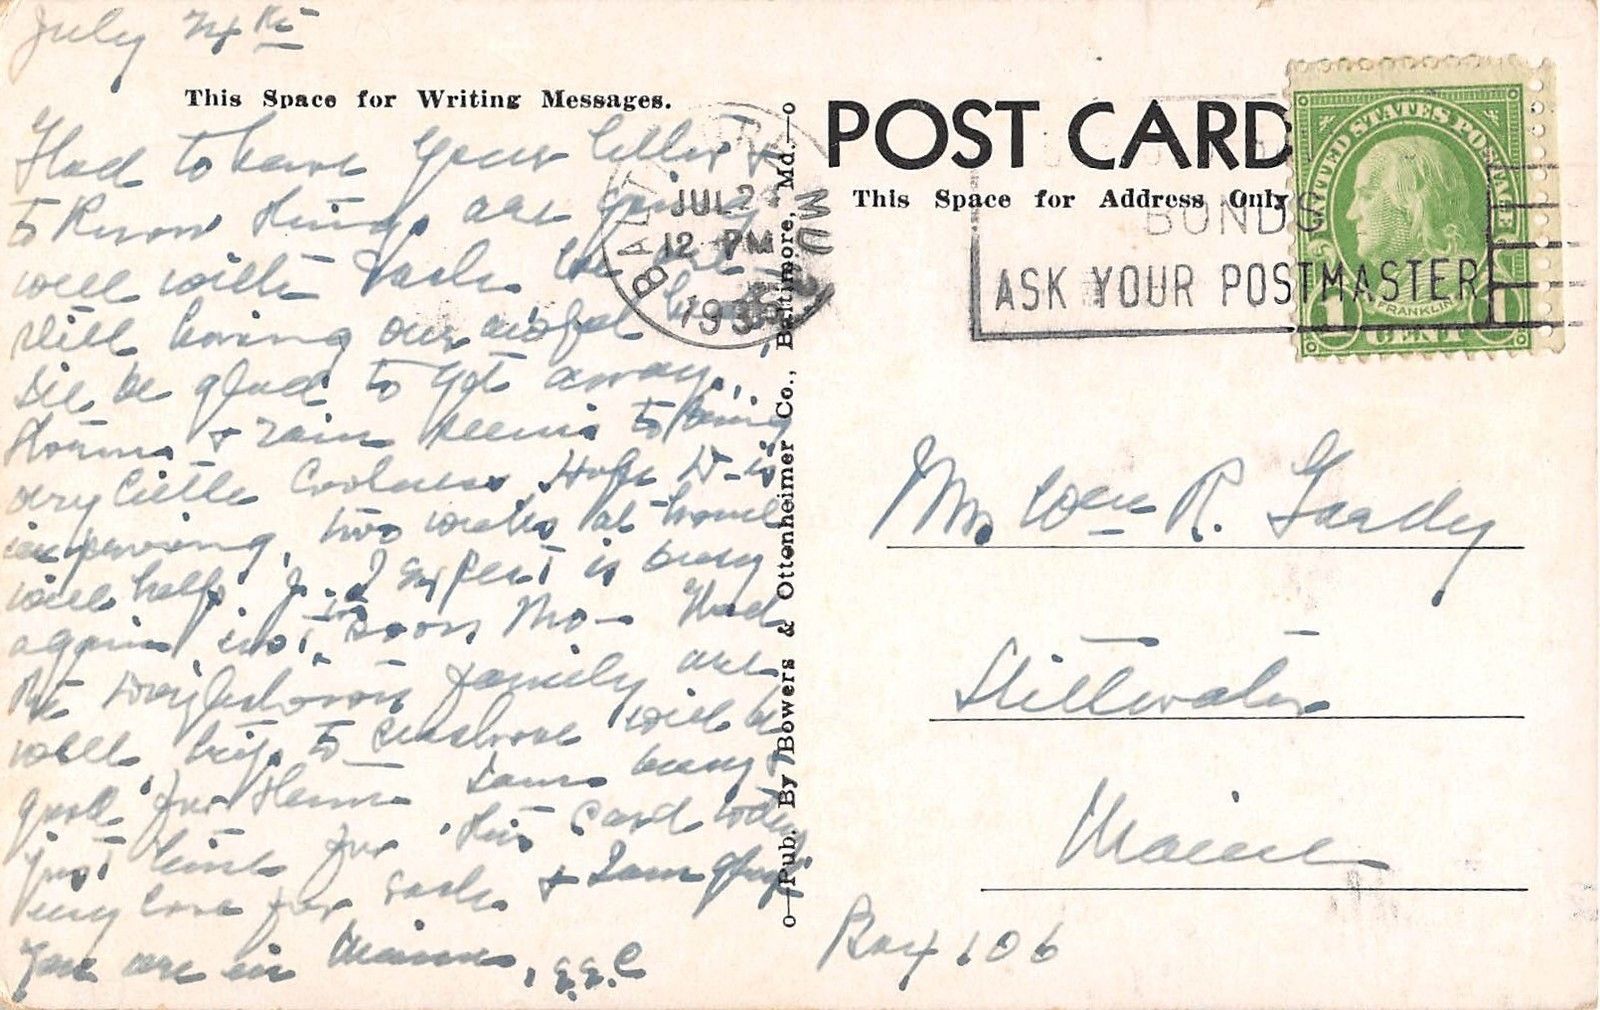 July 24th
This Space for Writing Messages.
Glad to have your letter &
to know things are going
well with each. We are
still having our awful heat
I'll be glad to get away.
Storms & rain seems to bring
very little coolness. Hope D- is
improving, two weeks at home
will help. J. I expect is busy
again in
the family are
well, trip to seashore will be
good for them. I am busy &
just time for this card today
my love for each & I am glad
you are in Maine. E.E.C
Pub. By Bowers & Ottenheimer Co., Baltimore, Md.
POST CARD
This Space for Address Only
BALTIMORE MD
JUL 2
12 PM
193
BONDS
ASK YOUR POSTMASTER
UNITED STATES POSTAGE
FRANKLIN
1 CENT 1
Mrs Wm R.
Stillwater
Maine
Box 106